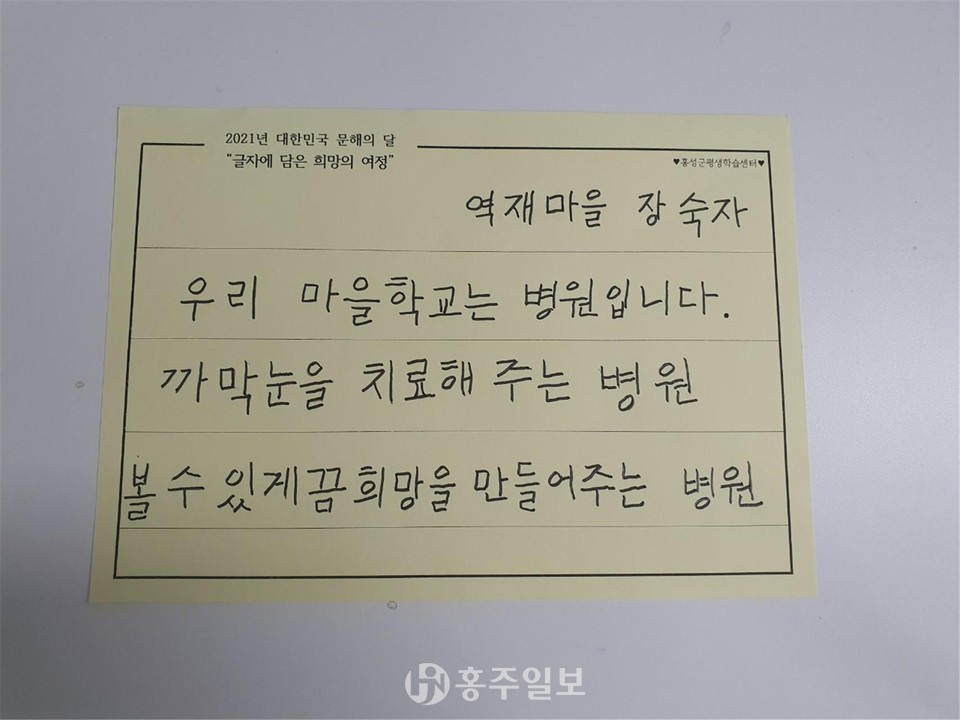 2021년 대한민국 문해의 달
“글자에 담은 희망의 여정”
♥홍성군평생학습센터♥
역재마을 장숙자
우리 마을학교는 병원입니다.
까막눈을 치료해 주는 병원
볼 수 있게끔 희망을 만들어주는 병원
홍주일보